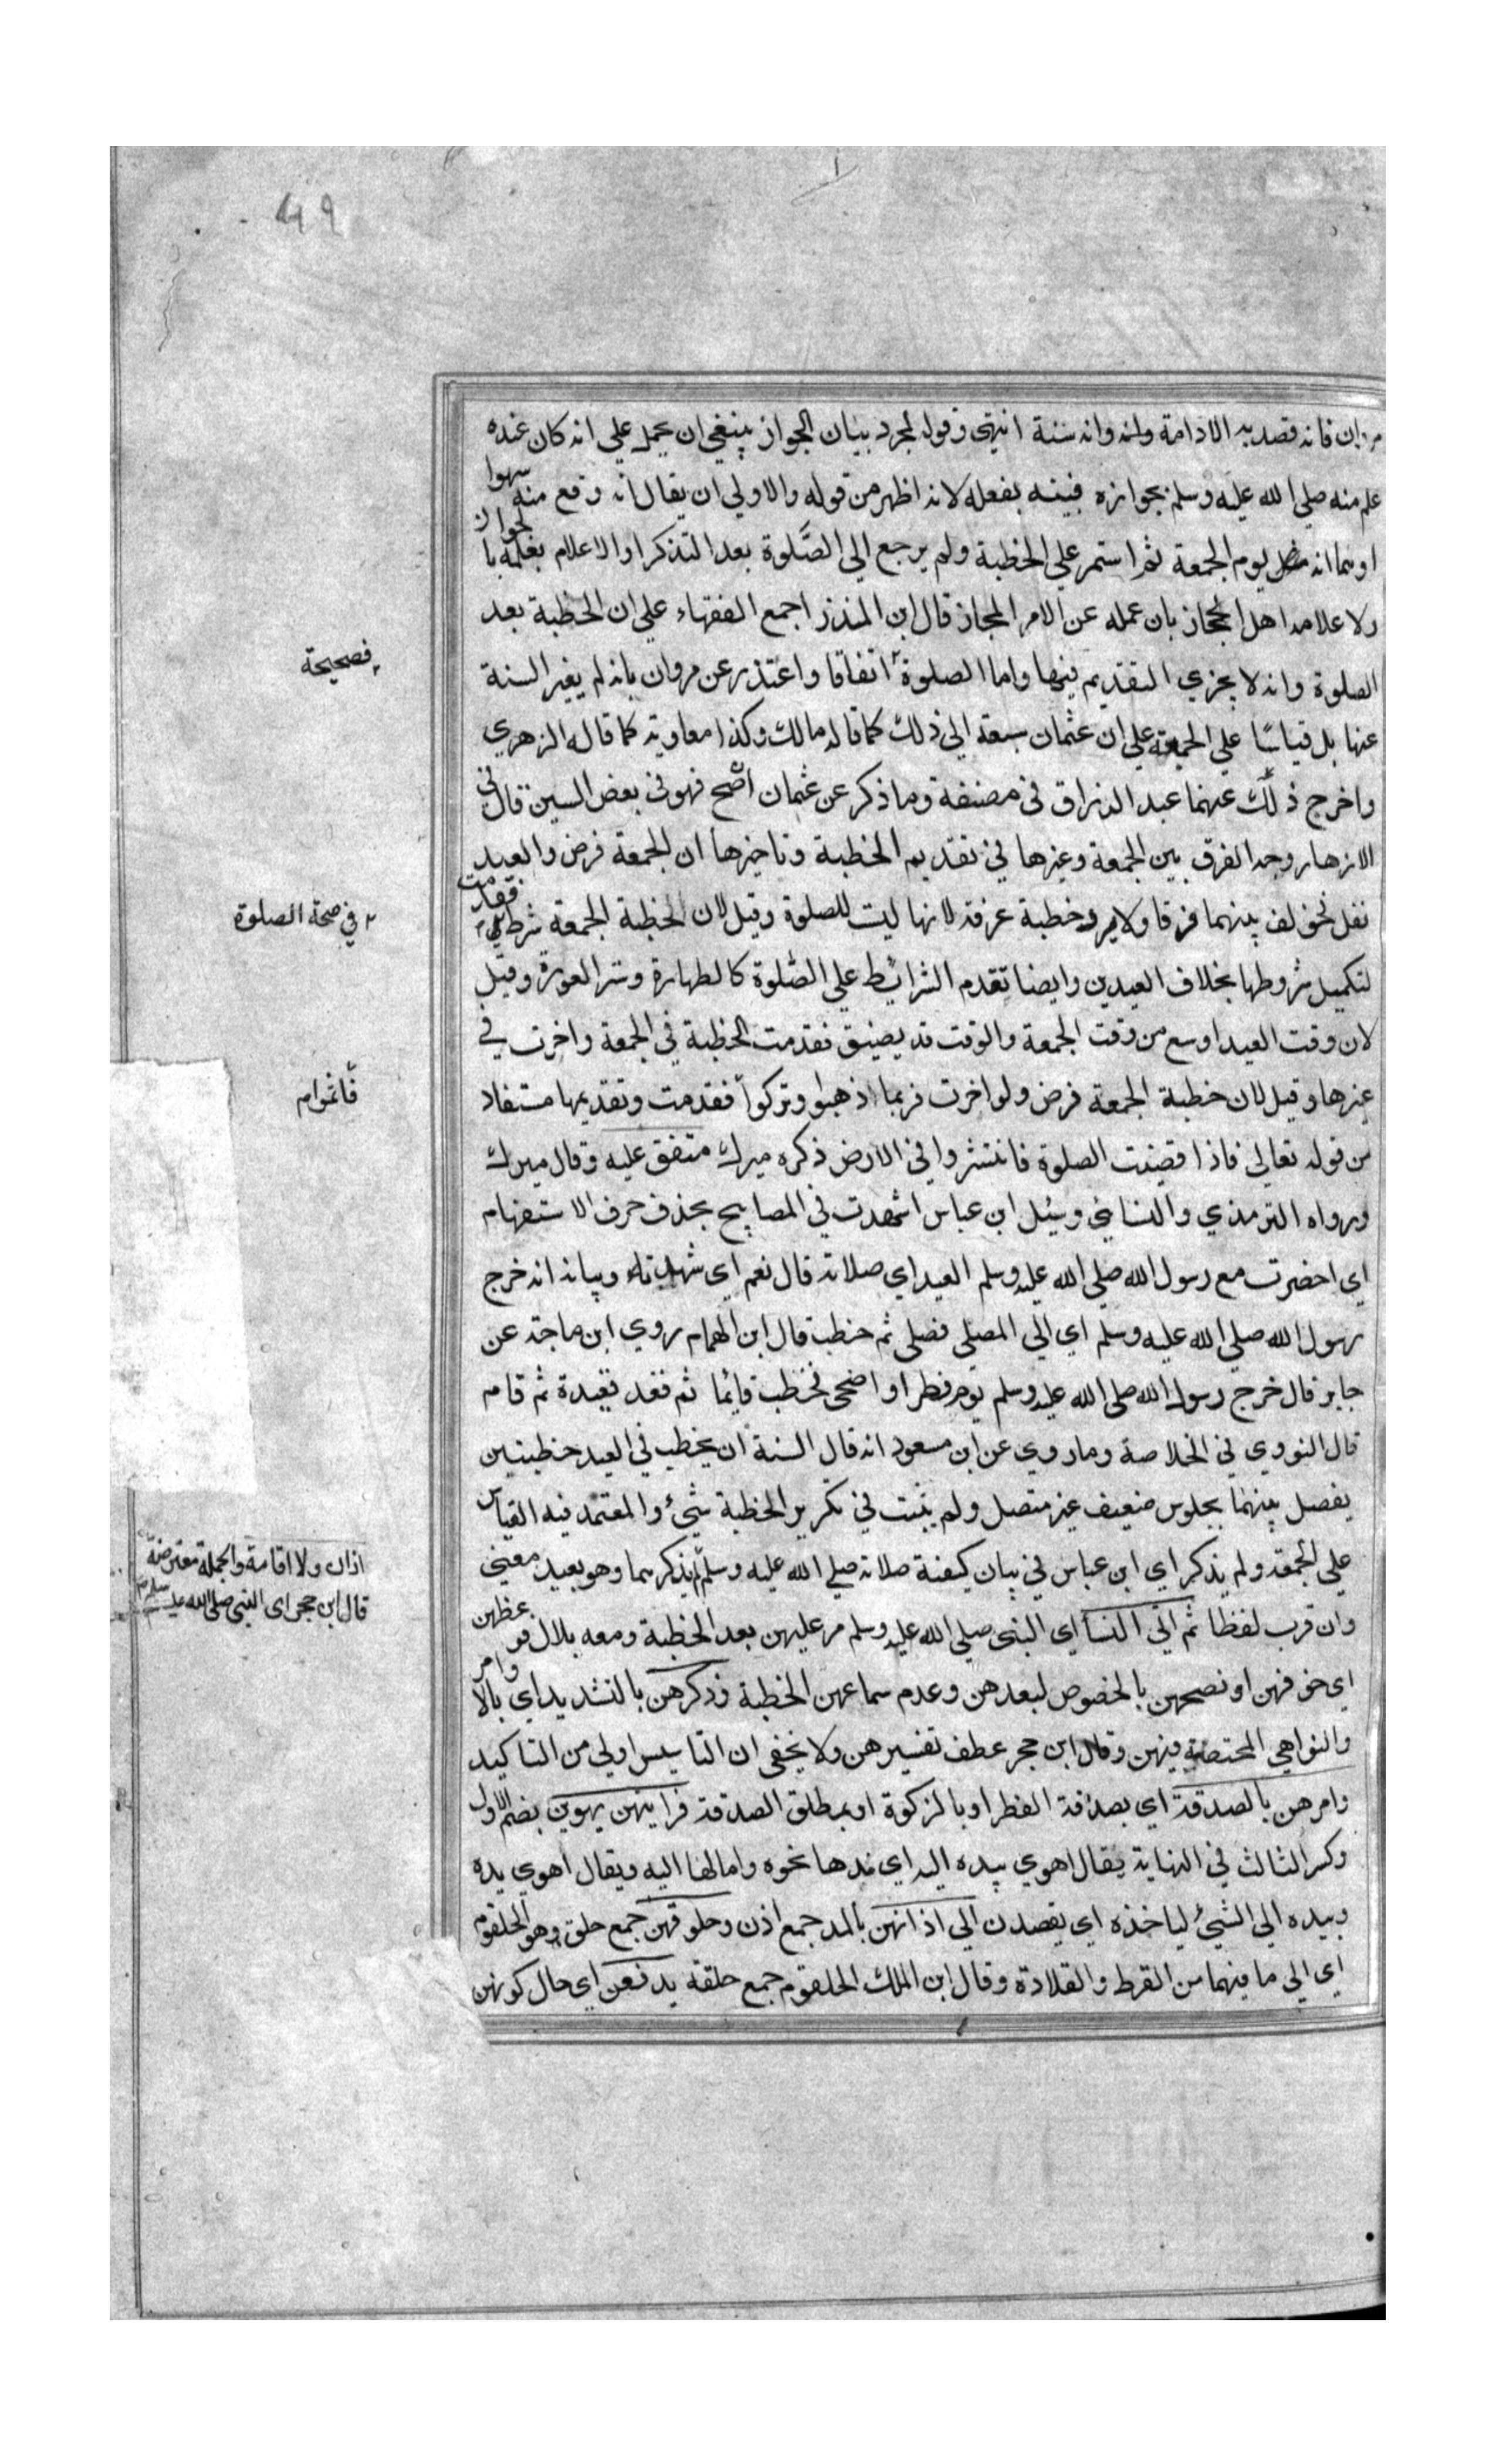 مروان فانه قصد به الادامة وانه سنة انتهى وقوله لمجرد بيان الجواز ينبغي ان يحمل علي انه كان عنده
علم منه صلي الله عليه وسلم بجوازه فبينه بفعله لانه اظهر من قوله والاولي ان يقال انه وقع منه سهوا
او يوم الجمعة ثم استمر علي الخطبة ولم يرجع الي الصلوة بعد التذكر او الاعلام بفعله بالجواز
ولاعلامه اهل الحجاز بان عمله عن الامر المجاز قال ابن المنذر اجمع الفقهاء علي ان الخطبة بعد
الصلوة وانه لا يجزي التقديم فيها واما الصلوة اتفاقا واعتذر عن مروان بانه لم يغير السنة
فصحيحة
عنها بل قياسًا علي الجمعة علي ان عثمان سبقه الي ذلك كما قاله مالك وكذا معاوية كما قاله الزهري
واخرج ذلك عنهما عبد الرزاق في مصنفة وما ذكر عن عثمان اصح فهو في بعض السنين قال في
الازهار وجه الفرق بين الجمعة وغيرها في تقديم الخطبة وتاخيرها ان الجمعة فرض والعيد
نفل فخولف بينهما فرقا ولا يرد خطبة عرفة لانها ليت للصلوة وقيل لان الخطبة الجمعة شرط فقدمت
في صحة الصلوة
لتكميل شروطها بخلاف العيدين وايضا تقدم الشرائط علي الصّلوة كالطهارة وستر العورة وقيل
لان وقت العيد اوسع من وقت الجمعة والوقت قد يضيق فقدمت الخطبة في الجمعة واخرت في
غيرها وقيل لان خطبة الجمعة فرض ولو اخرت فربما اذهبوا وتركوا فقدمت وتقديمها مستفاد
من قوله تعالي فاذا قضيت الصلوة فانتشروا في الارض ذكره ميرك متفق عليه وقال ميرك
ورواه الترمذي والنسايي وسئل ابن عباس اشهدت في المصابيح بحذف حرف الاستفهام
اي احضرت مع رسول الله صلي الله عليه وسلم العيد اي صلاته قال نعم اي شهدته وبيانه انه خرج
رسول الله صلي الله عليه وسلم اي الي المصلي فصلي ثم خطب قال ابن الهمام روي ابن ماجة عن
جابر قال خرج رسول الله صلي الله عليه وسلم يوم فطر او اضحى فخطب قايما ثم قعد قعيدة ثم قام
قال النووي في الخلاصة وما روي عن ابن مسعود انه قال السنة ان يخطب في العيد خطبتين
يفصل بينهما بجلوس ضعيف غير متصل ولم يثبت في تكرير الخطبة شيئ والمعتمد فيه القياس
علي الجمعة ولم يذكر اي ابن عباس في بيان كيفية صلاته صلي الله عليه وسلم يذكرسما وهو بعيد معني
اذان ولا اقامة والجملة معترضة
قال ابن حجر اي النبي صلي الله عليه وسلم
وان قرب لفظا ثم اتي النسا اي النبي صلي الله عليه وسلم مر عليهن بعد الخطبة ومعه بلال فوعظهن
اي خوفهن او نصحهن بالخصوص لبعدهن وعدم سماعهن الخطبة وذكرهن بالتشديد اي بالاوامر
والنواهي المختصة فيهن وقال ابن حجر عطف تفسير هن ولا يخفى ان التاسيس اولي من التاكيد
وامرهن بالصدقة اي بصدقة الفطر او بالزكوة او بمطلق الصدقة فرايتهن يهوين بضم الاول
وكسر الثالث في النهاية يقال اهوي بيده اليه اي مدها نحوه وامالها اليه ويقال اهوي يده
وبيده الي الشيئ لياخذه اي يقصدن الي اذانهن بالمد جمع اذن وحلوقهن جمع حلق وهو الحلقوم
اي الي ما فيهما من القرط والقلادة وقال ابن الملك الحلقوم جمع حلقه يدفعن اي حال كونهن